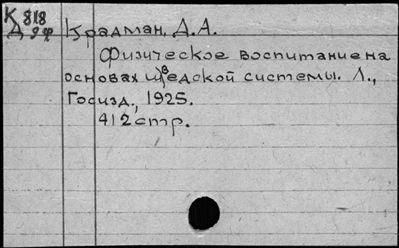 К 818
Крадман, Д.А.
Физическое воспитание на
основах шведской системы. Л.,
Госизд., 1925.
412 стр.